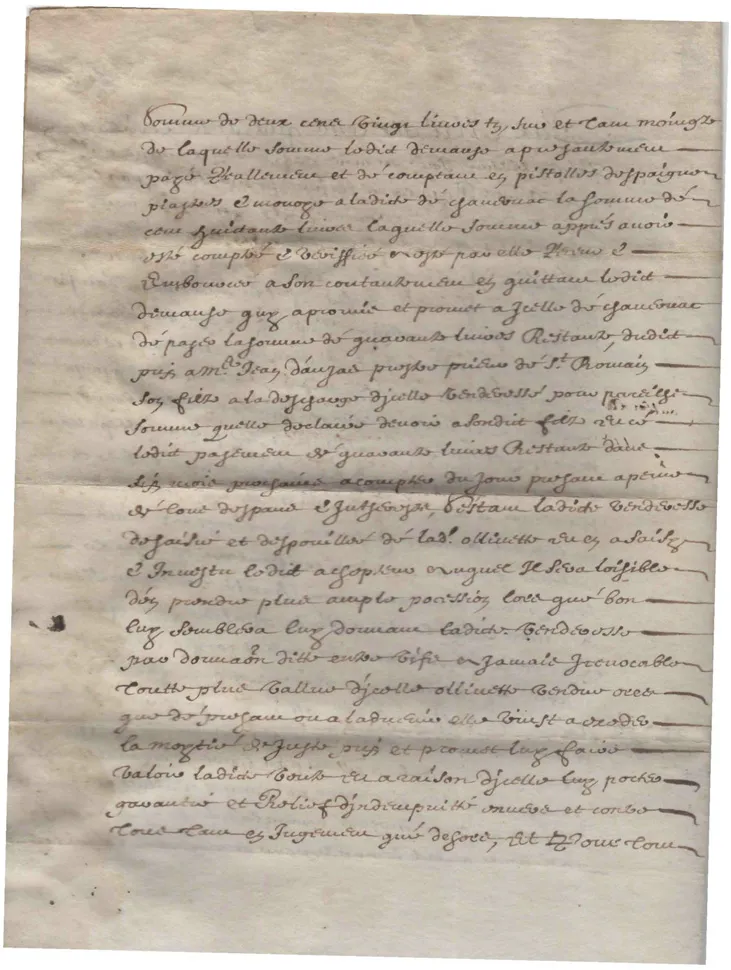 Somme de deux cens vingt livres t, sur et tant moingz
de laquelle somme ledict demanse a presantement
payé Reallement et de comptant en pistolles despaigne
piastres & monoye a ladicte de chanernac la somme de
cent huictante livres laquelle somme apprés avoir
esté compté & veriffiée a esté par elle Receue &
Emboursée a son contantement en quittant ledict
demanse quy a promis et promet a Icelle de chanernac
de payer la somme de quarante livres Restante dudict
prix a Mre Jean dauzas prestre prieur de St Romain
son filz a la descharge dicelle venderesse pour pareilhe
somme quelle declaire devoir a sondict filz
ledict payement de quarante livres Restante dans
six mois prochains a compter du jour presant a peine
de tous despans & Intherestz, Sestant ladicte venderesse
dessaisie et despouillée de lad. ollivette et en a saisy
& Investu ledict achepteur auquel Il sera loisible
den prendre plus ample pocession lors que bon
luy semblera luy donnant ladicte venderesse
par donnaon ditte entre vifz a jamais Irrevocable
toutte plus vallue dicelle ollivette vendue ores
que de presant ou a ladvenir elle vinst a exceder
la moytié de juste prix et promet luy faire
valoir ladicte vente et a raison dicelle luy porter
garantie et Relief dindempnitté envers et contre
tous tant en Jugement que dehors, Et Pour tout